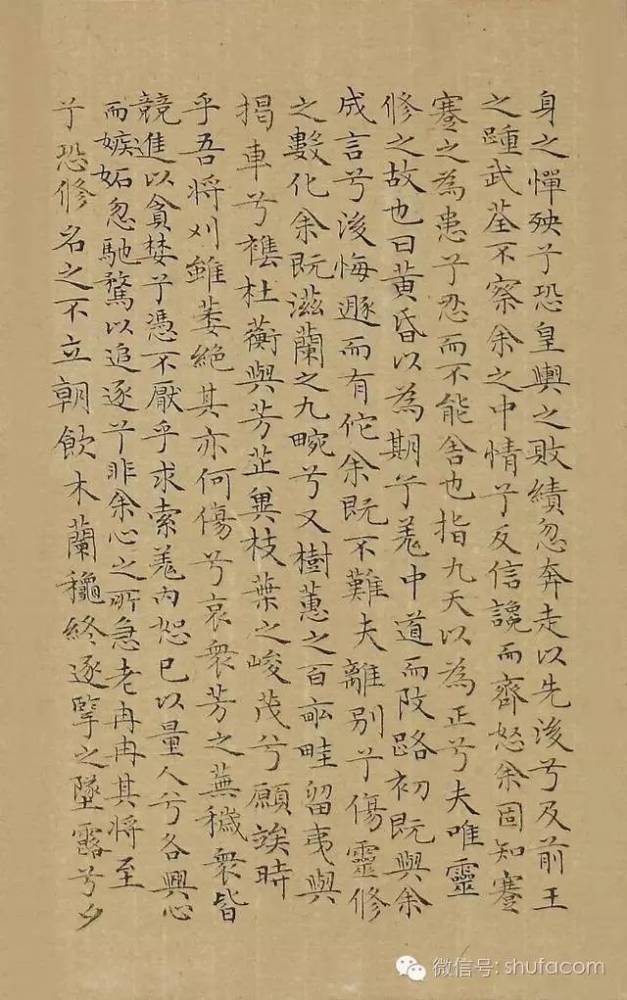 身之憚殃兮恐皇輿之敗績忽奔走以先後兮及前王
之踵武荃不察余之中情兮反信讒而齊怒余固知蹇
蹇之為患兮忍而不能舍也指九天以為正兮夫唯靈
修之故也曰黃昏以為期兮羌中道而改路初既與余
成言兮後悔遯而有佗余既不難夫離別兮傷靈修
之數化余既滋蘭之九畹兮又樹蕙之百畝畦留夷與
揭車兮樵杜蘅與芳芷冀枝葉之峻茂兮願竢時
乎吾將刈雖萎絕其亦何傷兮哀眾芳之蕪穢眾皆
競進以貪婪兮憑不厭乎求索羌內恕己以量人兮各興心
而嫉妬忽馳騖以追逐兮非余心之所急老冉冉其將至
兮恐修名之不立朝飲木蘭之墜露兮夕
微信号: shufacom